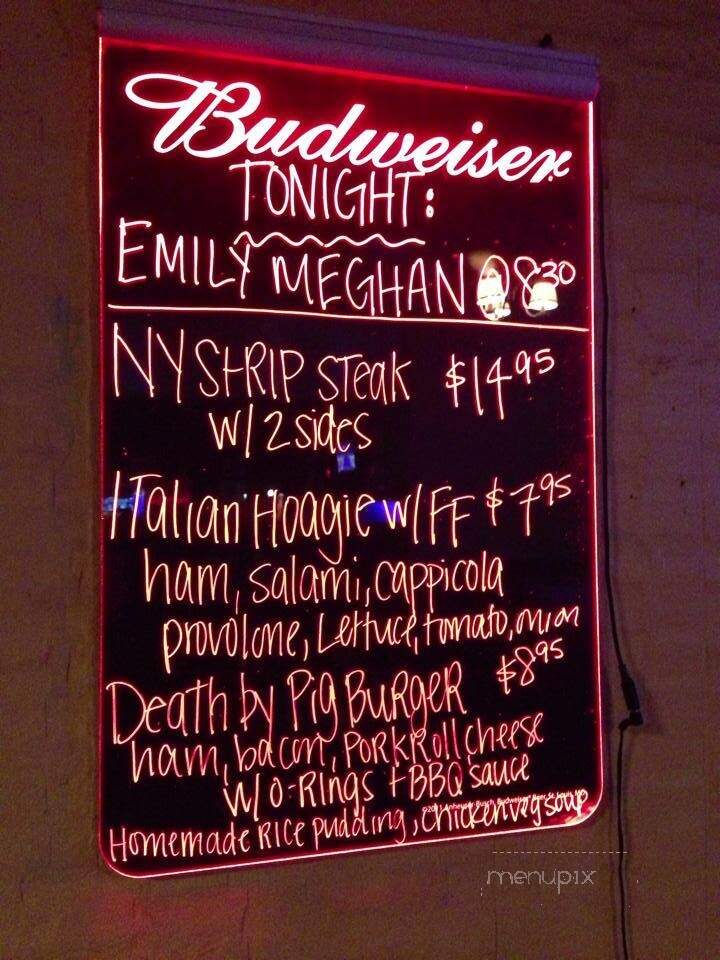 Budweiser
TONIGHT:
EMILY MEGHAN @ 8:30
NY STRIP STEAK $14.95
W/ 2 sides
ITalian Hoagie W/ FF $7.95
ham, salami, cappicola
provolone, Lettuce, tomato, onion
Death by Pig BURGER $8.95
ham, bacon, PORKROll, cheese
W/ O-RINGS + BBQ sauce
Homemade Rice pudding, chicken veg soup
menupix